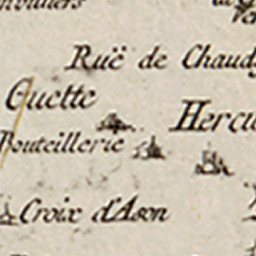 Ruë de Chaud
Guette
Hercu
Bouteillerie
Croix d'Ason